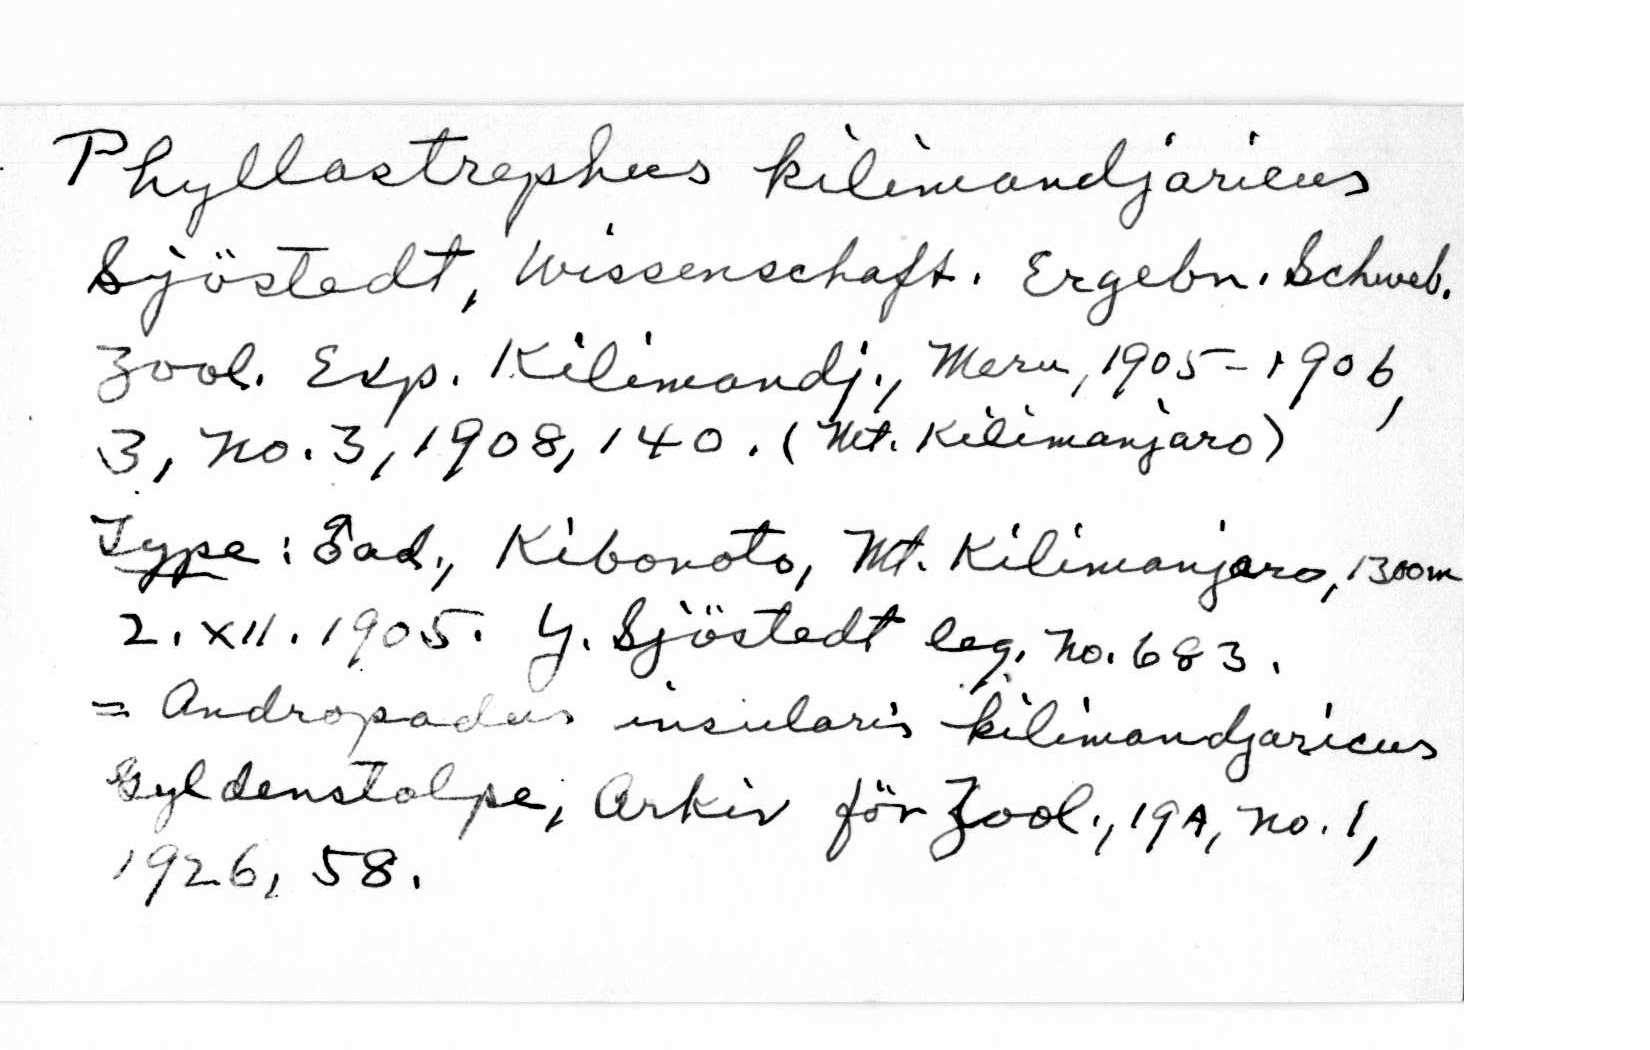 Phyllastrephus kilimandjaricus
Sjöstedt, Wissenschaft. Ergebn. Schwed.
Zool. Exp. Kilimandj., Meru, 1905-1906,
3, no. 3, 1908, 140. (Mt. Kilimanjaro)
Type: ♂ ad., Kibonoto, Mt. Kilimanjaro, 1300m
2. XII. 1905. Y. Sjöstedt leg. no. 683.
= Andropadus insularis kilimandjaricus
Gyldenstolpe, Arkiv för Zool., 19A, no. 1,
1926, 58.